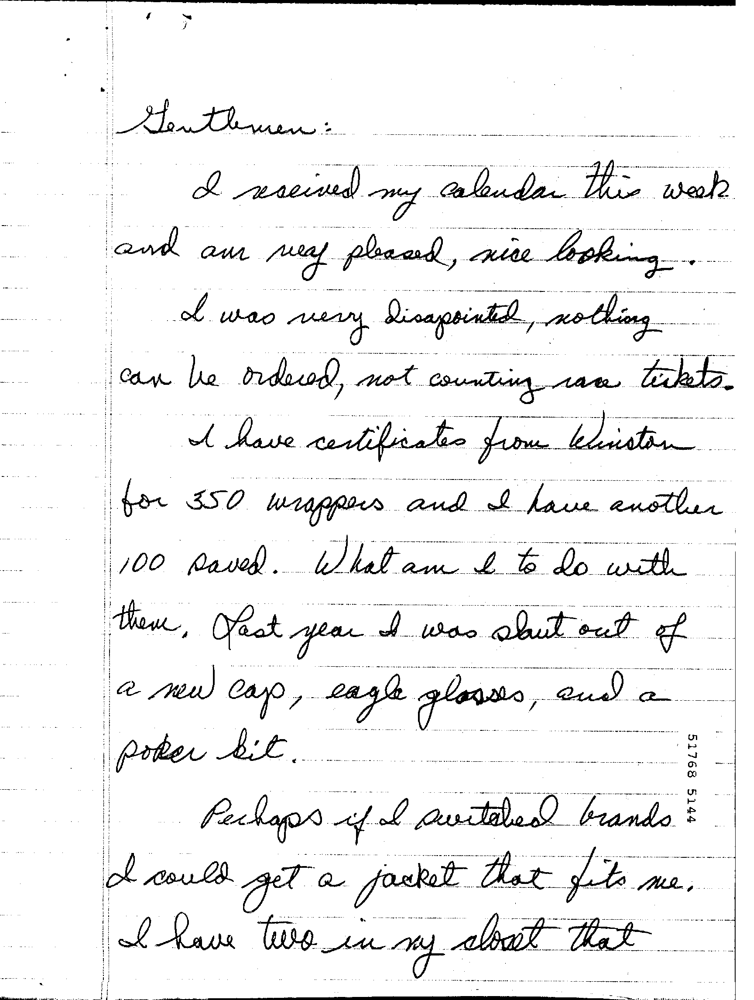 Gentlemen:
I received my calendar this week
and am very pleased, nice looking.
I was very disapointed, nothing
can be ordered, not counting race tickets.
I have certificates from Winston
for 350 wrappers and I have another
100 saved. What am I to do with
them. Last year I was shut out of
a new cap, eagle glasses, and a
poker kit.
Perhaps if I switched brands
I could get a jacket that fits me.
I have two in my closet that
51768 5144